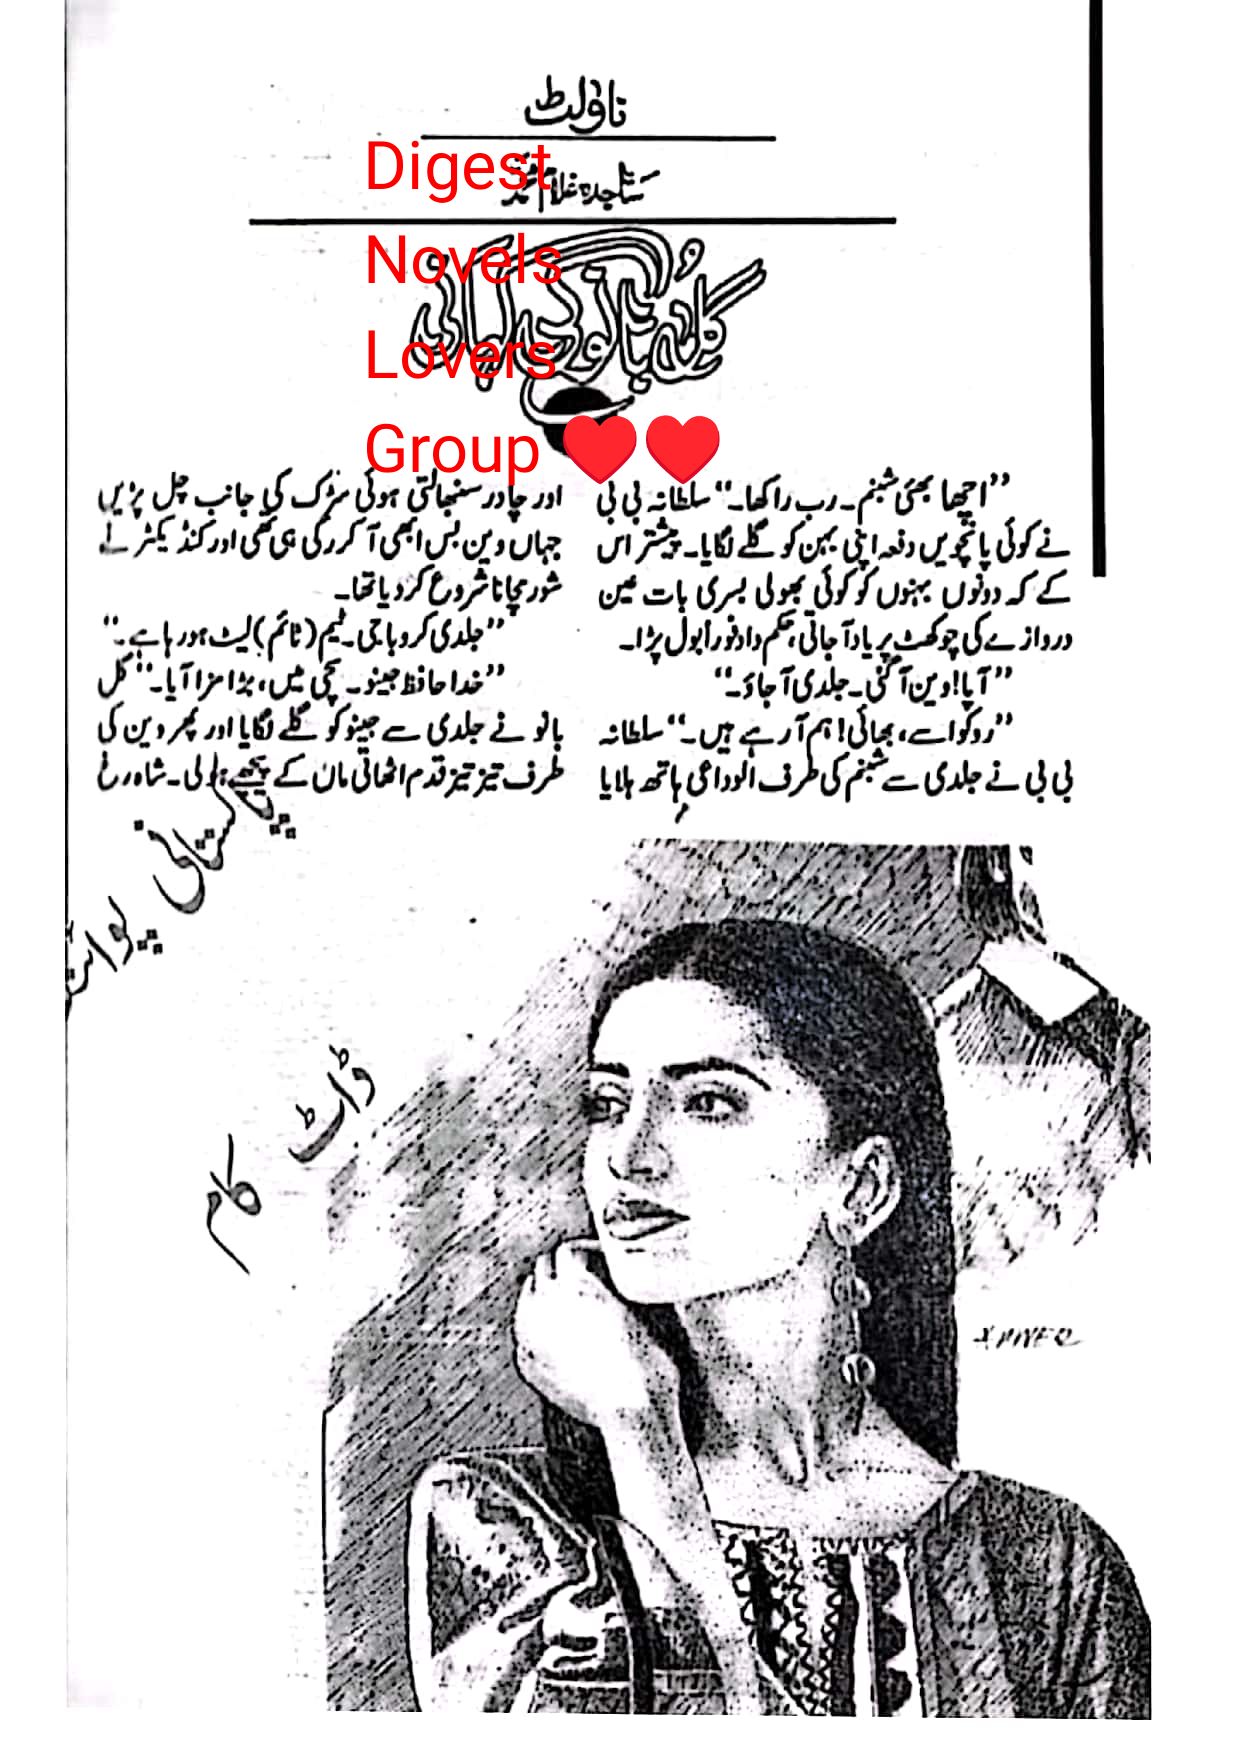 ناولٹ
ساجدہ غلام محمد
Digest
Novels
Lovers
Group ❤❤
گل بانو کی کہانی
”اچھا بھئی شبنم۔ رب راکھا۔“ سلطانہ بی بی
نے کوئی پانچویں دفعہ اپنی بہن کو گلے لگایا۔ پیشتر اس
کے کہ دونوں بہنوں کو کوئی بھولی بسری بات عین
دروازے کی چوکھٹ پر یاد آ جاتی، حکم داد فوراً بول پڑا۔
”آپا! وین آ گئی۔ جلدی آ جاؤ۔“
”روکو اسے، بھائی! ہم آ رہے ہیں۔“ سلطانہ
بی بی نے جلدی سے شبنم کی طرف الوداعی ہاتھ ہلایا
اور چادر سنبھالتی ہوئی سڑک کی جانب چل پڑیں
جہاں وین بس ابھی آ کر رکی ہی تھی اور کنڈیکٹر نے
شور مچانا شروع کر دیا تھا۔
”جلدی کرو باجی۔ ٹیم (ٹائم) لیٹ ہو رہا ہے۔“
”خدا حافظ جینو۔ سچی میں، بڑا مزا آیا۔“ گل
بانو نے جلدی سے جینو کو گلے لگایا اور پھر وین کی
طرف تیز تیز قدم اٹھاتی ماں کے پیچھے ہو لی۔ شاہ رخ
پاکستانی پوائنٹ
ڈاٹ کام